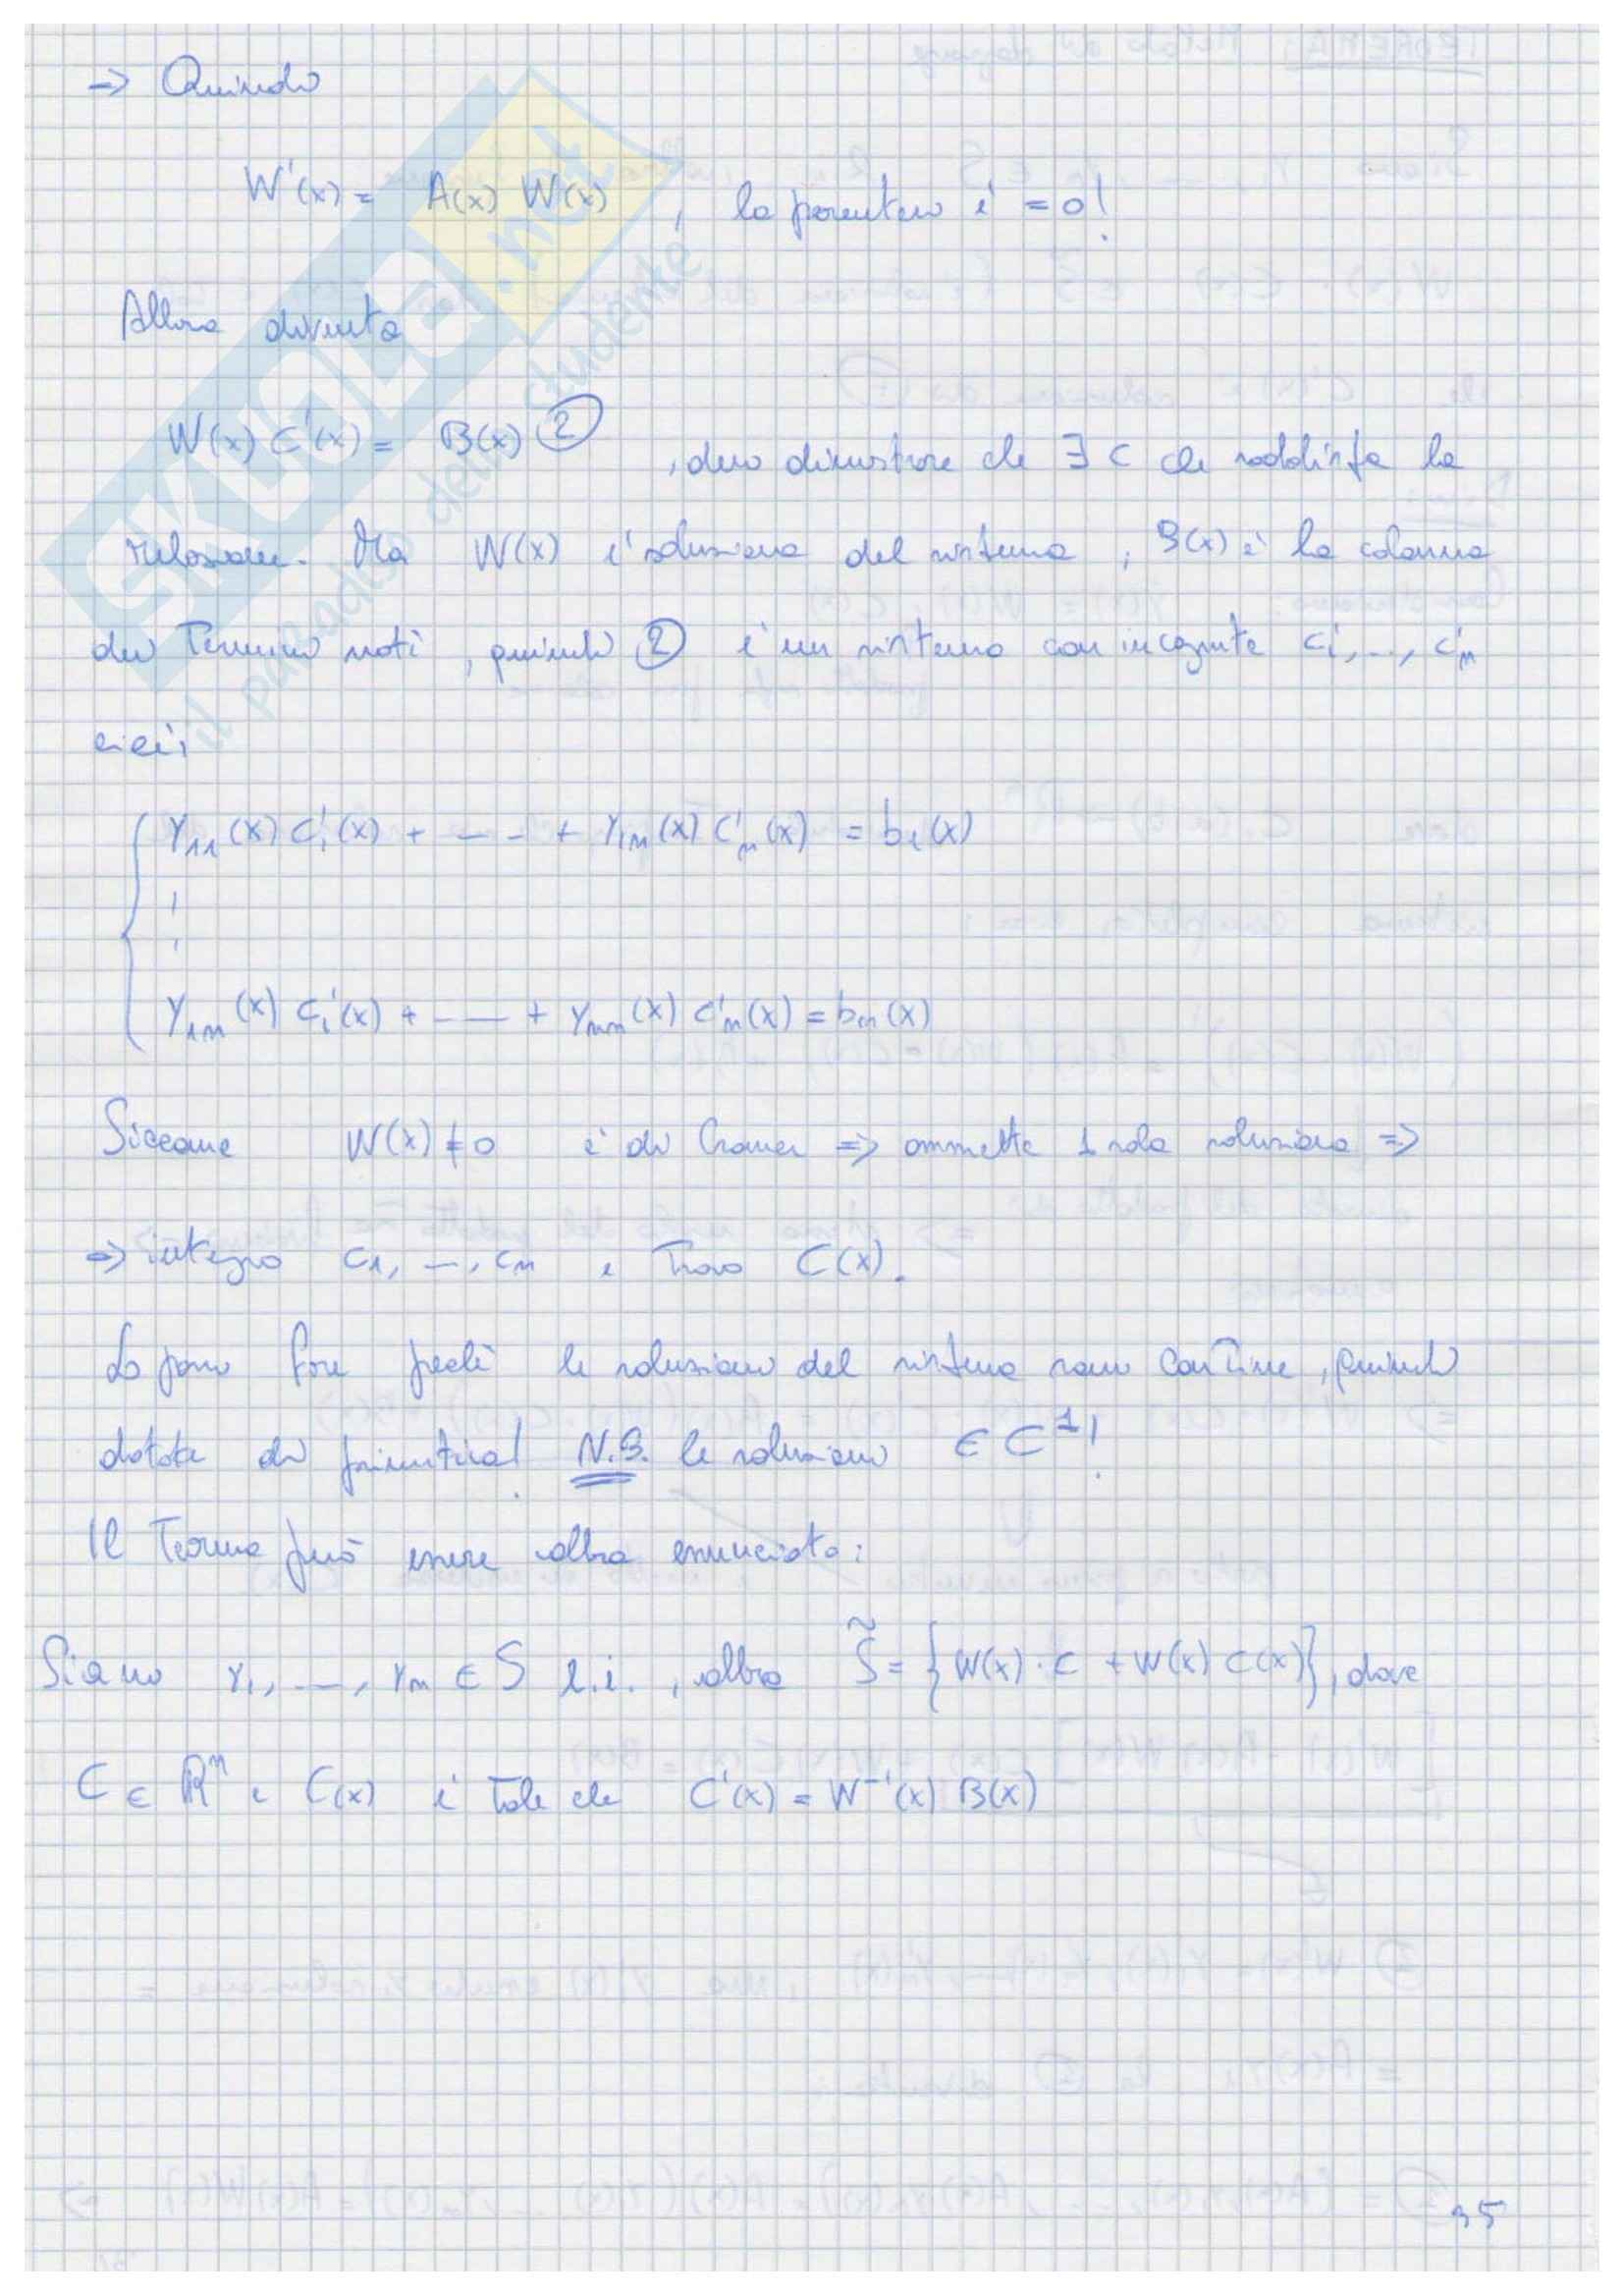 => Quindi
W'(x) = A(x) W(x) , la parentesi è = 0!
Allora diventa
W(x) C'(x) = B(x) ② , devo dimostrare che ∃ C che soddisfa la
relazione. Ma W(x) è soluzione del sistema , B(x) è la colonna
dei termini noti , quindi ② è un sistema con incognite c'1, .., c'n
cioè:
{ y11 (x) c'1 (x) + – – + y1n (x) c'n (x) = b1 (x)
y1n (x) c'1 (x) + – — + ynn (x) c'n (x) = bn (x)
Siccome W(x) ≠ 0 è di Cramer => ammette 1 sola soluzione =>
=> integro c1, —, cn e trovo C(x).
Lo posso fare perché le soluzioni del sistema sono continue , quindi
dotate di primitiva! N.B. le soluzioni ∈ C^1!
Il teorema può essere allora enunciato:
Siano y1, —, yn ∈ S l.i. , allora S̃ = { W(x) · C + W(x) C(x) } , dove
C ∈ R^n e C(x) è tale che C'(x) = W^-1 (x) B(x)
35
SKUOLA.net
il paradiso dello studente